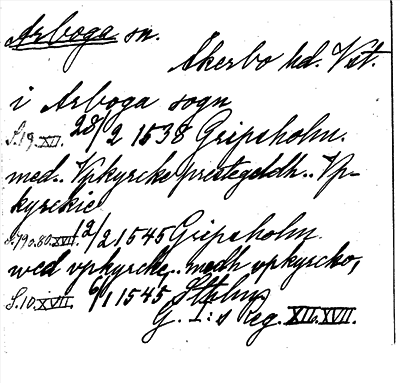 Arboga sn.
Åkerbo hd. Vstm.
i Arboga sogn
S.19.XII. 28/2 1538 Gripsholm.
med.. Vpkyrcke prestegeldh.. Vp-
kyrckie
S.79o.80.XVII. 12/2 1545 Gripsholm.
wed vpkyrcke,.. medh vpkyrcko,
S.10.XVII. 6/1 1545 Sthlm
G. I:s reg. XII. XVII.